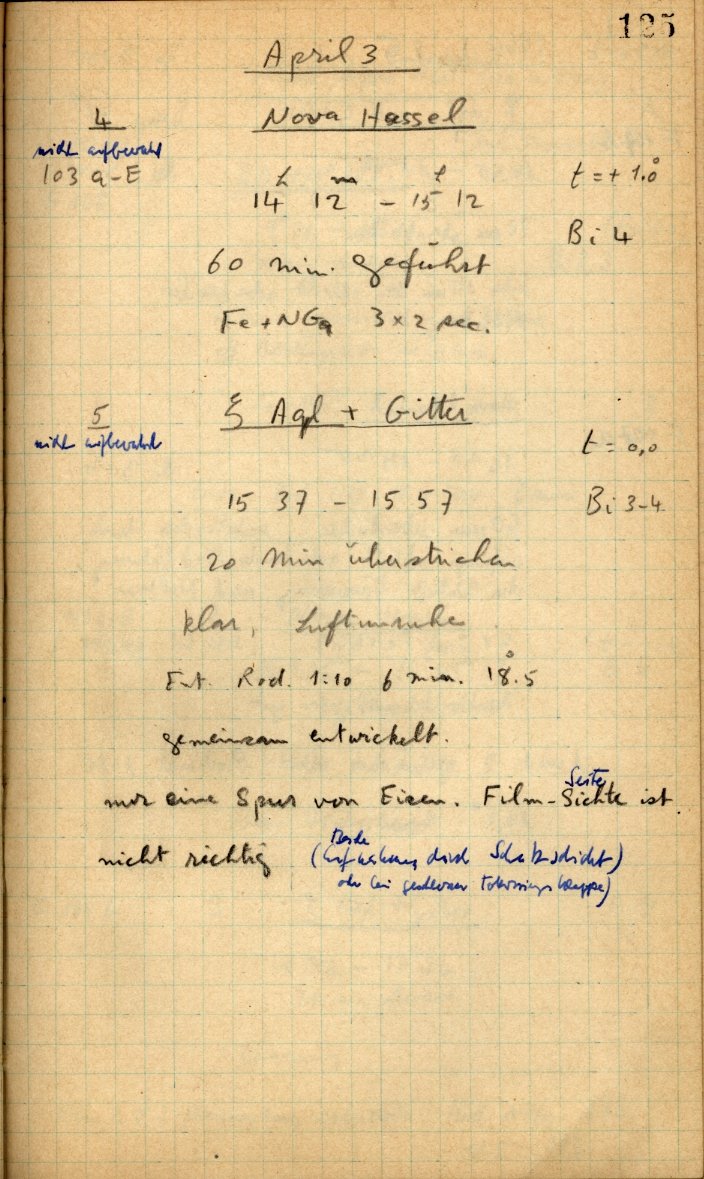 125
April 3
4
nicht aufbewahrt
103 a-E
Nova Hassel
14h 12m - 15h 12
t = + 1.°0
Bi 4
60 min. geführt
Fe + NGa 3 × 2 sec.
5
nicht aufbewahrt
ξ Aql + Gitter
t = 0,0
15 37 - 15 57
Bi 3-4
20 Min überstrichen
klar, Luftunruhe
Ent. Rod. 1:10 6 min. 18.°5
gemeinsam entwickelt.
nur eine Spur von Eisen. Film-Sichte ist
Seite
nicht richtig (durch Schutzschicht)
oder bei